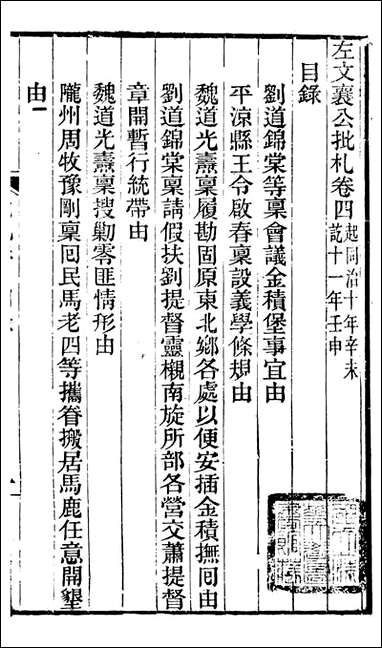 左文襄公批札卷四起同治十年辛未訖十一年壬申
目錄
劉道錦棠等稟會議金積堡事宜由
平涼縣王令啟春稟設義學條規由
魏道光燾稟履勘固原東北鄉各處以便安插金積撫回由
劉道錦棠稟請假扶劉提督靈櫬南旋所部各營交蕭提督
章開暫行統帶由
魏道光燾稟搜勦零匪情形由
隴州周牧豫剛稟回民馬老四等攜眷搬居馬鹿任意開墾
由